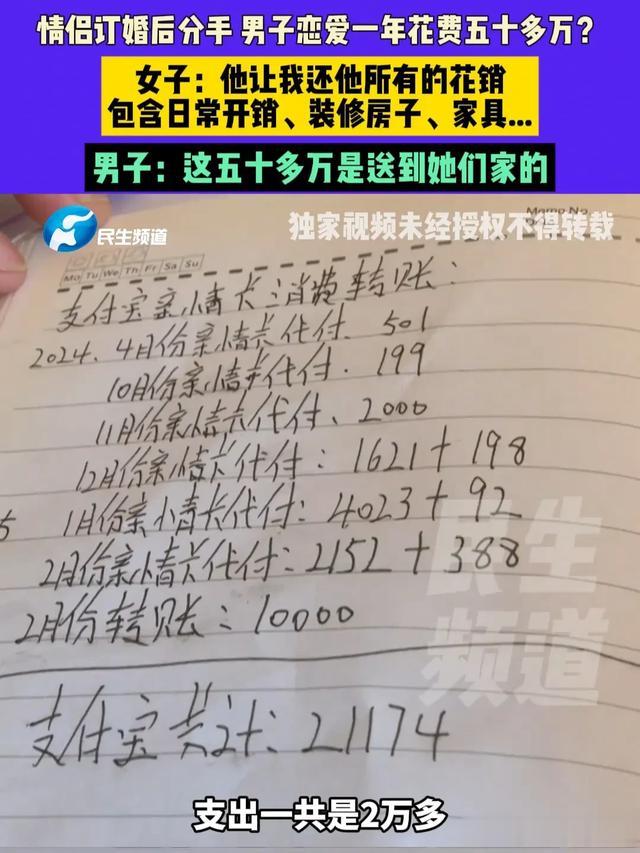 情侣订婚后分手 男子恋爱一年花费五十多万？
女子：他让我还他所有的花销
包含日常开销、装修房子、家具...
男子：这五十多万是送到她们家的
民生频道
独家视频未经授权不得转载
Memo No.
Mo Tu We Th Fr Sa Su
支付宝亲情卡消费转账：
2024.4月份亲情卡代付.501
10月份亲情卡代付.199
11月份亲情卡代付、2000
12月份亲情卡代付：1621+198
5 1月份亲情卡代付：4023+92
2月份亲情卡代付：2152+388
2月份转账：10000
民生
频道
支付宝共计：21174
支出一共是2万多